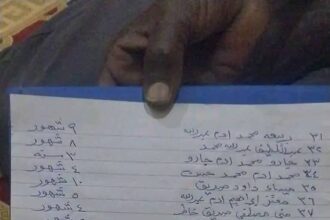 ٣١ ربيعه محمد ادم عبدالله ٩ شهور
٣٢ عبداللطيف عبدالله محمد ٨ شهور
٣٣ جارو محمد ادم جارو ٣ سنه
٣٤ ادم محمد ٤ شهور
٣٥ ميساء داود صديق ١٠ شهور
٣٦ معتز ابراهيم ادم ٥ شهور
٣٧ مصطفي صديق خاطر ٤ شهور